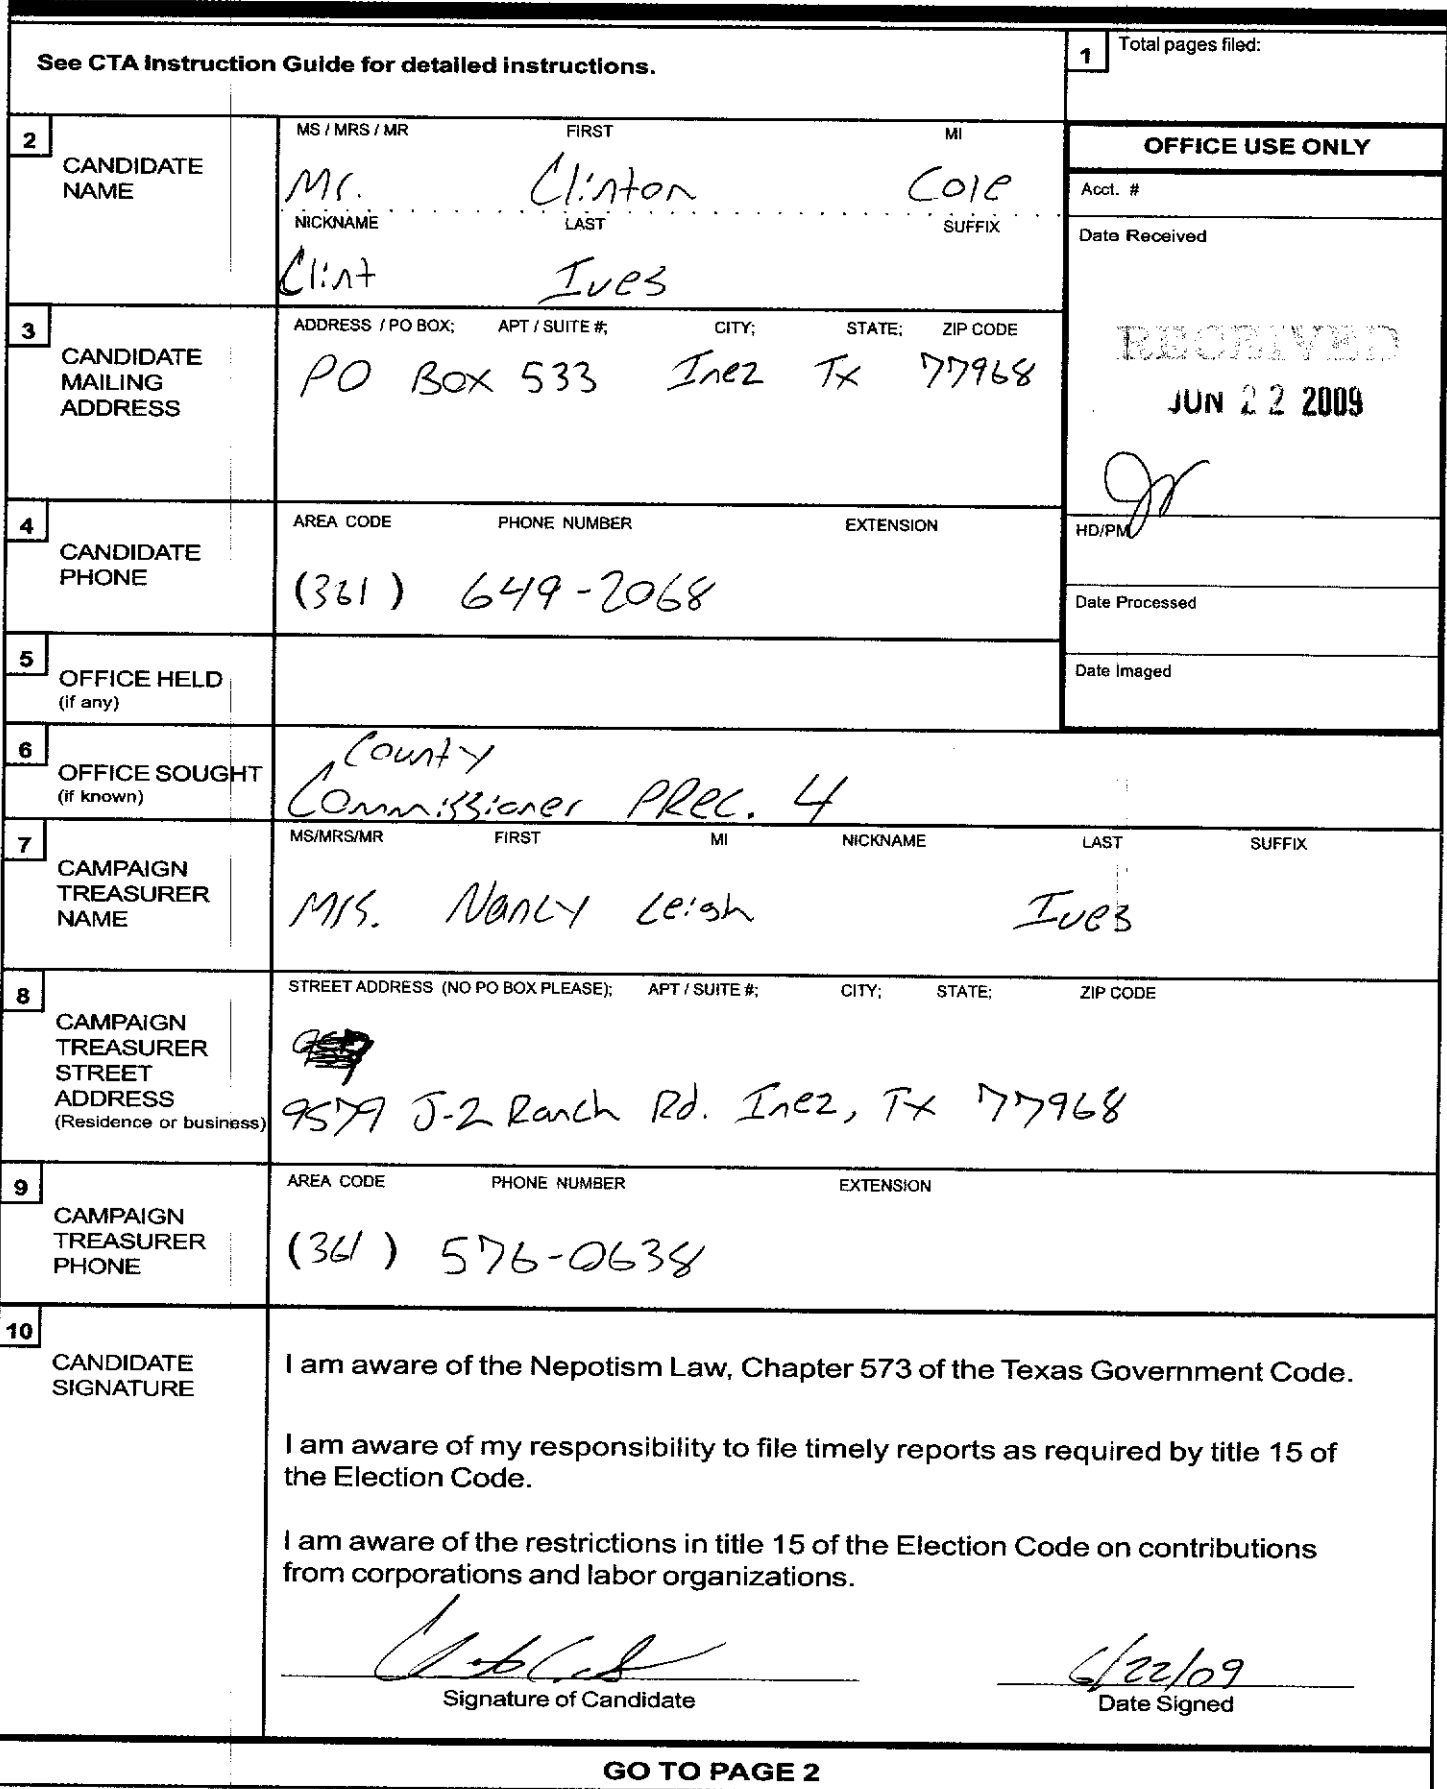 See CTA Instruction Guide for detailed instructions.
1 Total pages filed:
2 CANDIDATE NAME
MS / MRS / MR FIRST MI
Mr. Clinton Cole
NICKNAME LAST SUFFIX
Clint Ives
OFFICE USE ONLY
Acct. #
Date Received
RECEIVED
JUN 22 2009
HD/PM
Date Processed
Date Imaged
3 CANDIDATE MAILING ADDRESS
ADDRESS / PO BOX; APT / SUITE #; CITY; STATE; ZIP CODE
PO Box 533 Inez Tx 77968
4 CANDIDATE PHONE
AREA CODE PHONE NUMBER EXTENSION
(361) 649-2068
5 OFFICE HELD
(if any)
6 OFFICE SOUGHT
(if known)
County
Commissioner PRec. 4
7 CAMPAIGN TREASURER NAME
MS/MRS/MR FIRST MI NICKNAME LAST SUFFIX
Mrs. Nancy Leigh Ives
8 CAMPAIGN TREASURER STREET ADDRESS
(Residence or business)
STREET ADDRESS (NO PO BOX PLEASE); APT / SUITE #; CITY; STATE; ZIP CODE
9579 J-2 Ranch Rd. Inez, Tx 77968
9 CAMPAIGN TREASURER PHONE
AREA CODE PHONE NUMBER EXTENSION
(361) 576-0638
10 CANDIDATE SIGNATURE
I am aware of the Nepotism Law, Chapter 573 of the Texas Government Code.
I am aware of my responsibility to file timely reports as required by title 15 of
the Election Code.
I am aware of the restrictions in title 15 of the Election Code on contributions
from corporations and labor organizations.
6/22/09
Signature of Candidate Date Signed
GO TO PAGE 2